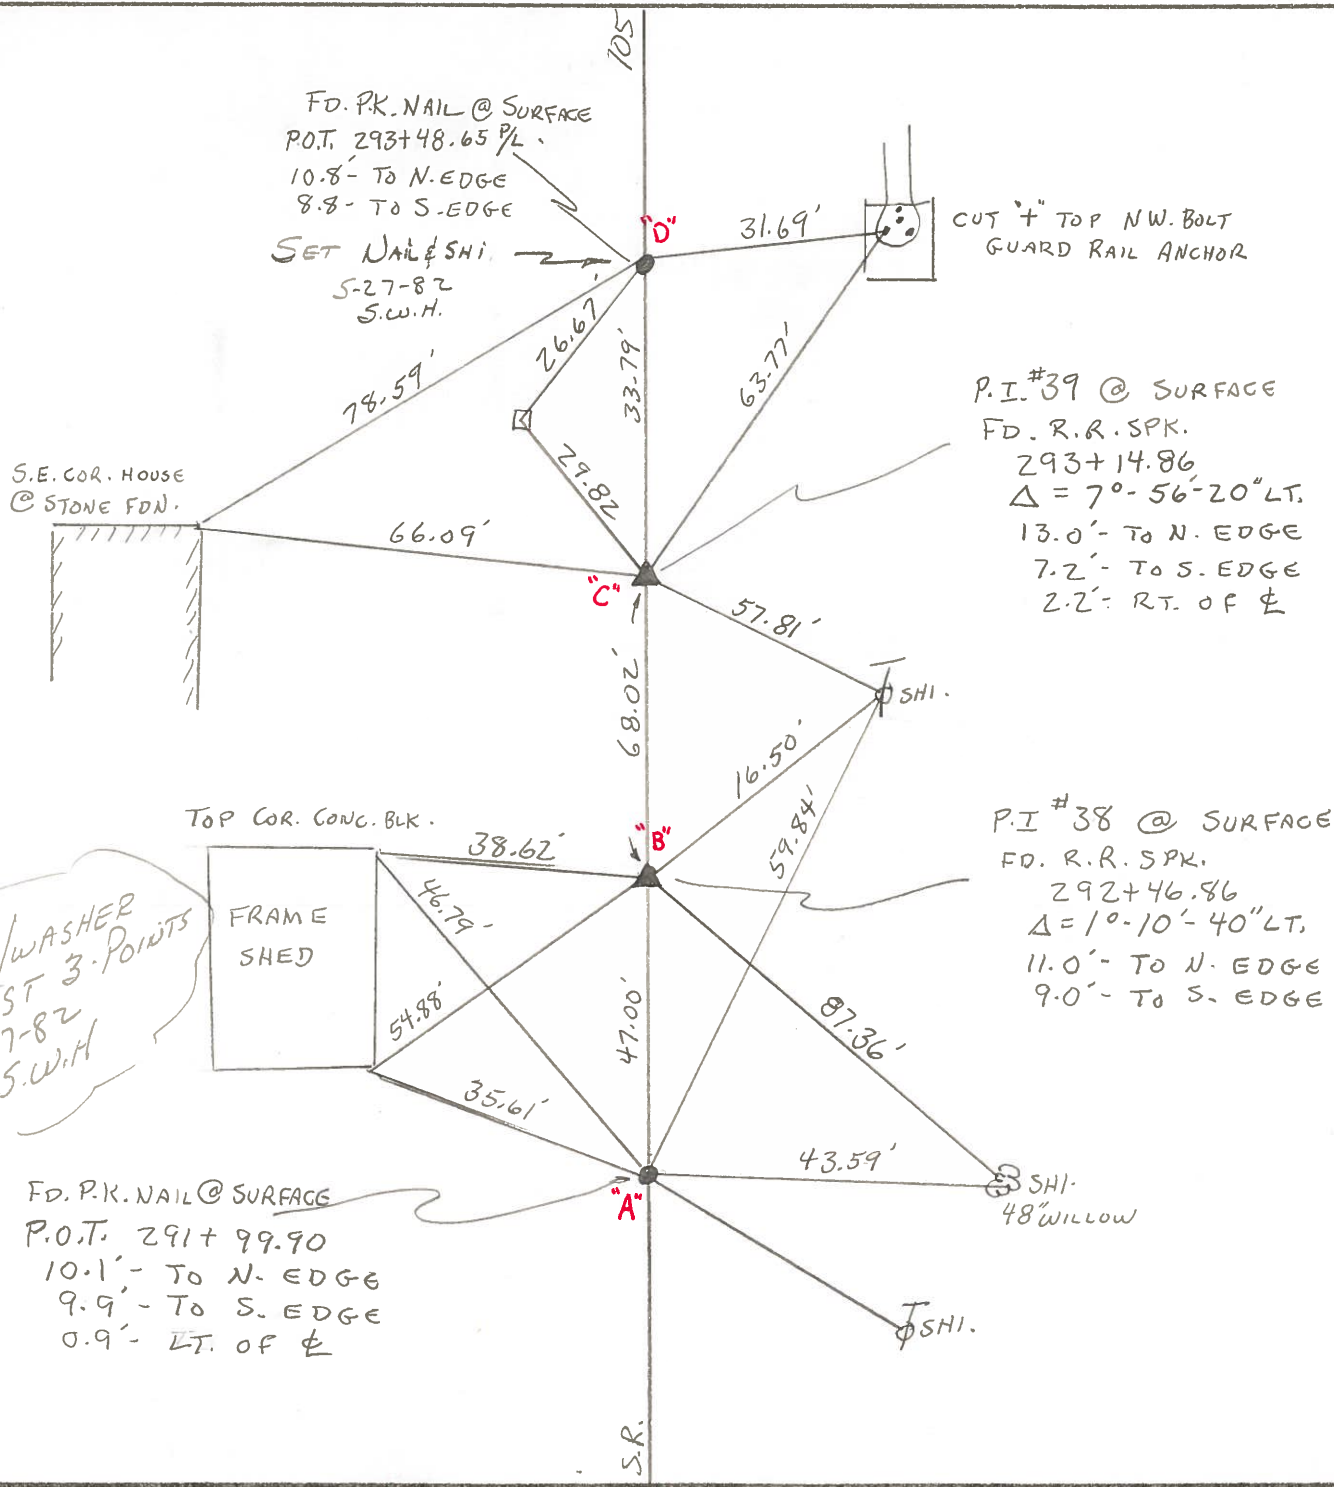 105
FD. P.K. NAIL @ SURFACE
P.O.T. 293+48.65 P/L.
10.8'- TO N. EDGE
8.8- TO S. EDGE
SET NAIL & SHI.
5-27-82
S.W.H.
"D"
31.69'
CUT "+" TOP N.W. BOLT
GUARD RAIL ANCHOR
26.67'
33.79'
63.77'
78.59'
29.82
P.I. #39 @ SURFACE
FD. R.R. SPK.
293+14.86
Δ = 7°-56'-20" LT.
13.0'- TO N. EDGE
7.2'- TO S. EDGE
2.2'- RT. OF ℄
S.E. COR. HOUSE
@ STONE FDN.
66.09'
"C"
57.81'
SHI.
68.02'
16.50'
59.84'
TOP COR. CONC. BLK.
38.62'
"B"
P.I #38 @ SURFACE
FD. R.R. SPK.
292+46.86
Δ = 1°-10'-40" LT.
11.0'- TO N. EDGE
9.0'- TO S. EDGE
FRAME
SHED
46.79'
54.88'
47.00'
87.36'
35.61'
/WASHER
ST 3-POINTS
7-82
S.W.H
43.59'
SHI.
48" WILLOW
"A"
FD. P.K. NAIL @ SURFACE
P.O.T. 291+99.90
10.1'- TO N. EDGE
9.9'- TO S. EDGE
0.9'- LT. OF ℄
SHI.
S.R.